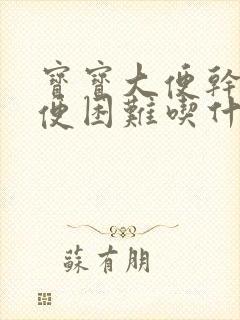 寶寶大便幹
便困難喫什
蘇有朋